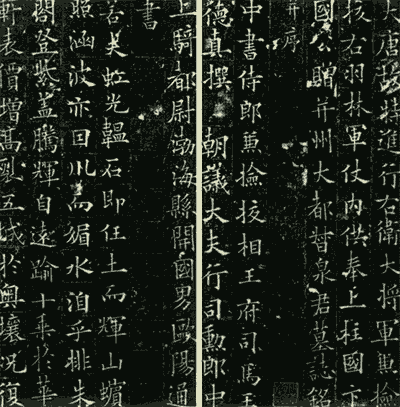 大唐故特進行右衛大將軍兼檢
挍右羽林軍仗內供奉上柱國卞
國公贈并州大都督泉君墓誌銘
并序
中書侍郎兼檢挍相王府司馬王
德真撰 朝議大夫行司勳郎中
上騎都尉渤海縣開國男歐陽通
書
若夫虹光韞石即任土而輝山蠙
照涵波亦因川而媚水洎乎排朱
閣登紫蓋騰輝自遠踰十乘於華
軒表價增高裂五城於奧壤況復